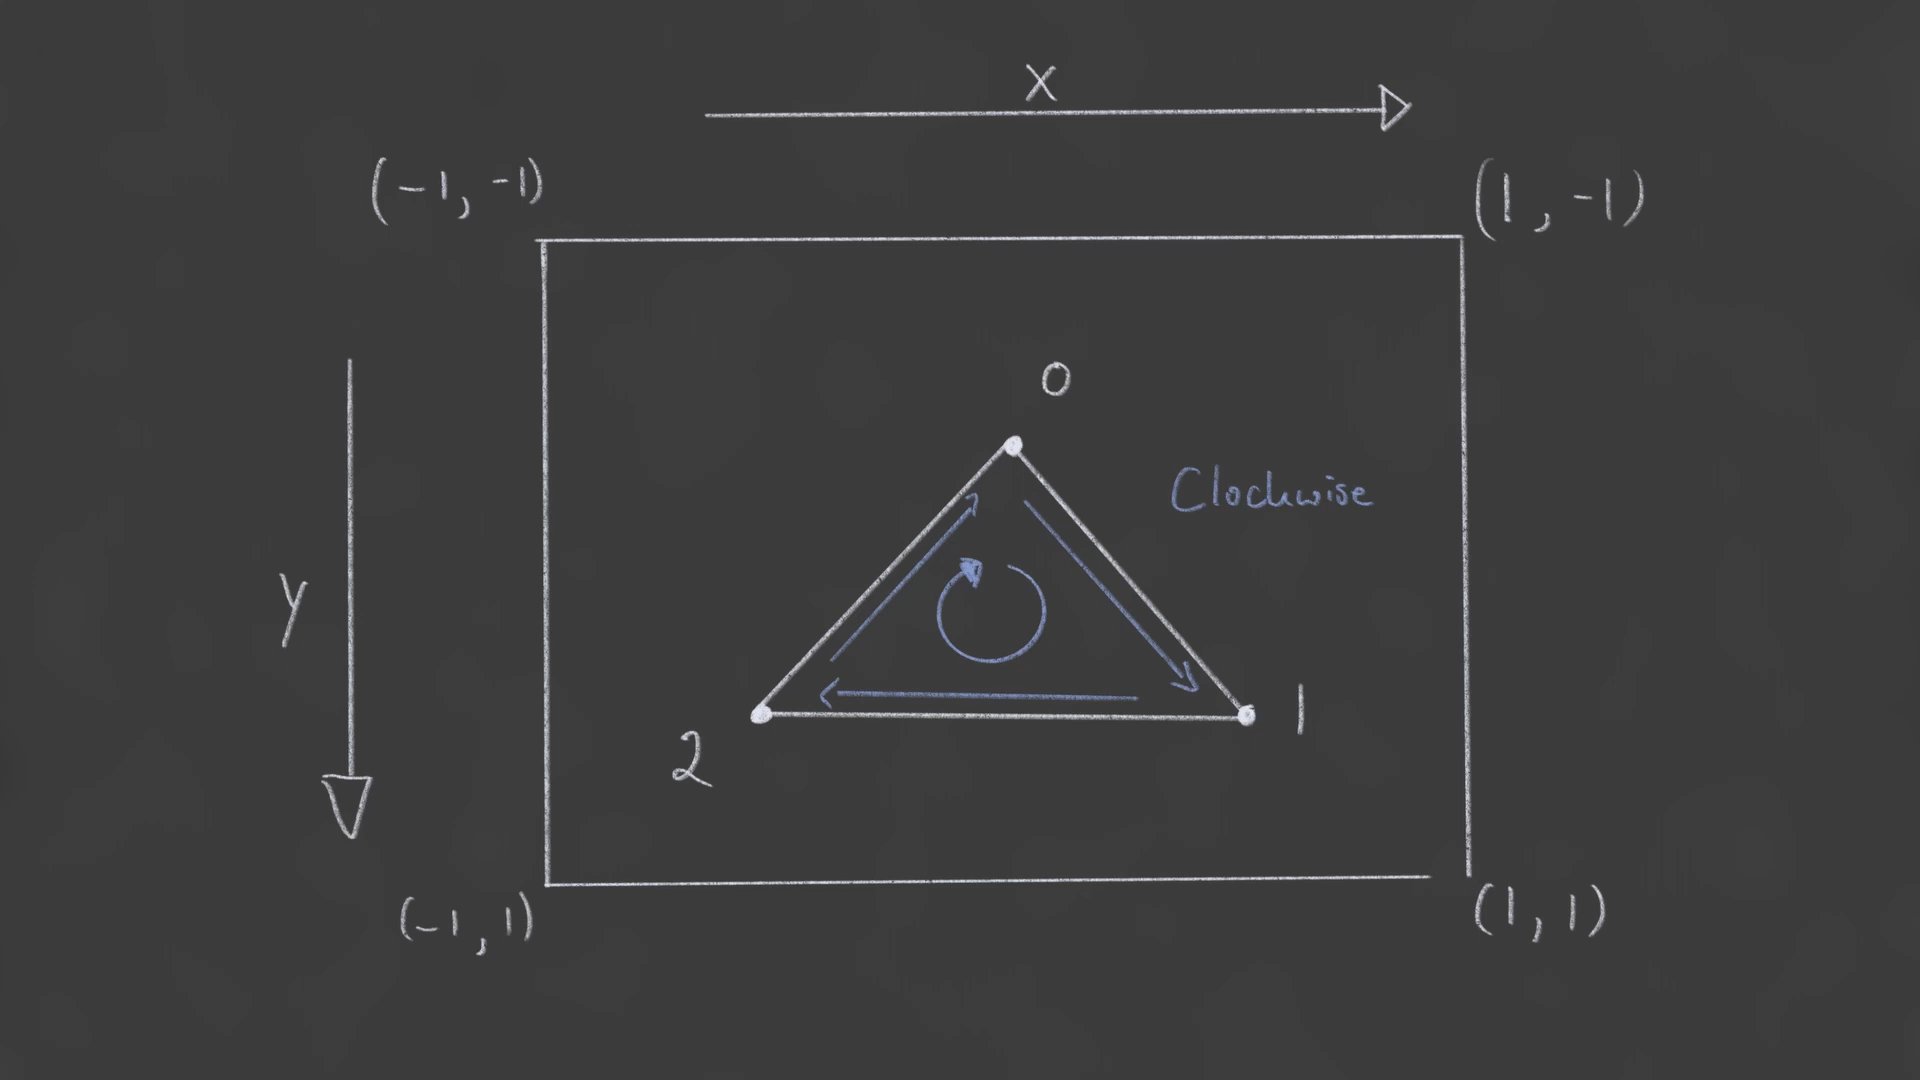 X
(-1, -1)
(1, -1)
0
Clockwise
y
1
2
(-1, 1)
(1, 1)